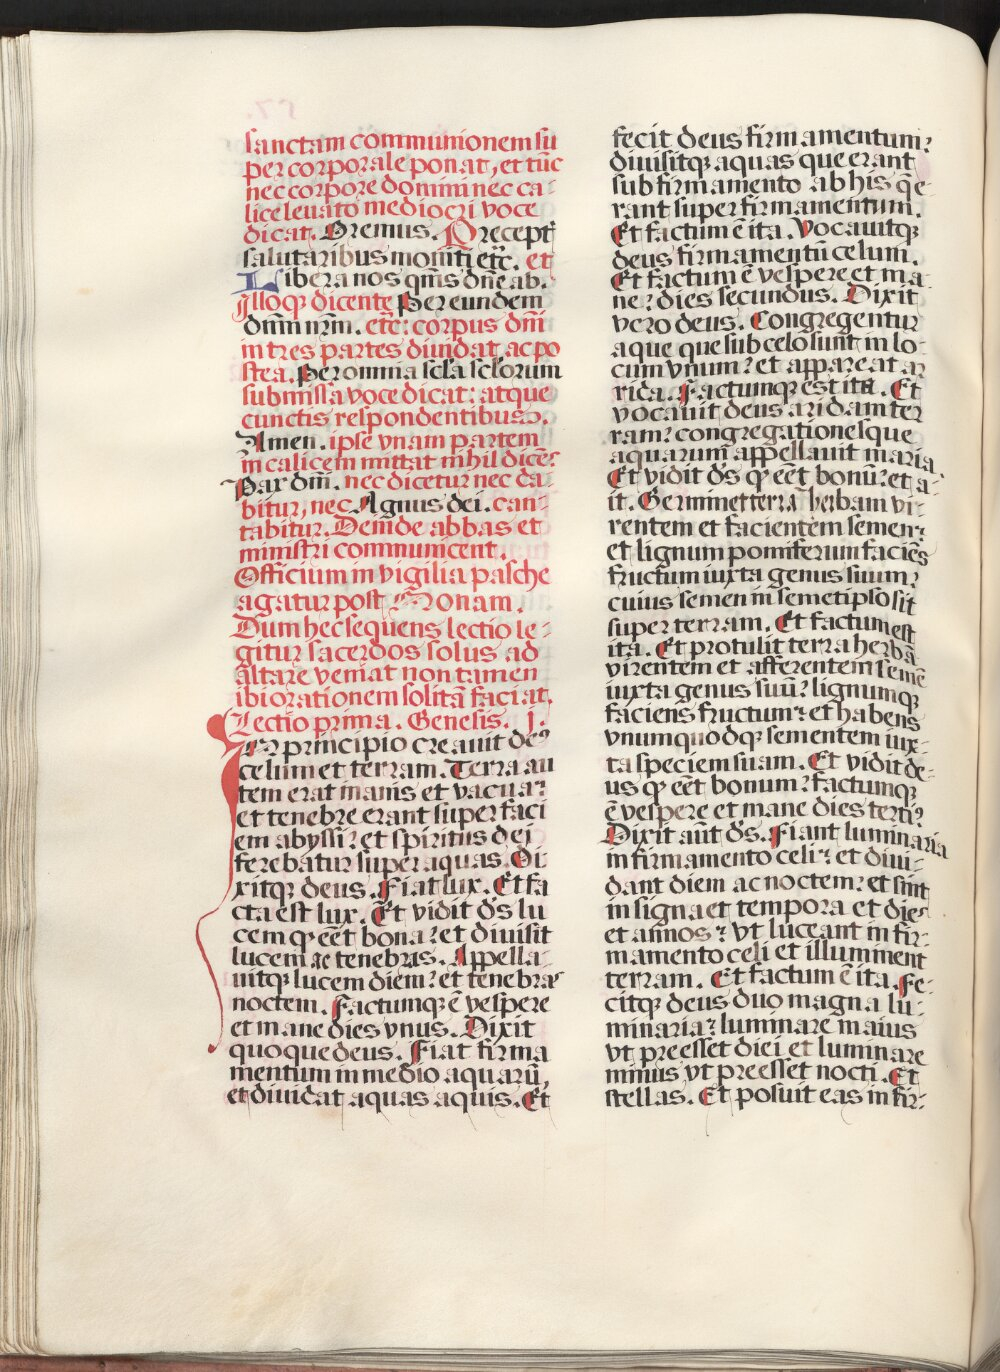 sanctam communionem su
per corporale ponat, et tūc
nec corpore domini nec ca-
lice leuato mediocri voce
dicat. Oremus. Precepti
salutaribus moniti etc̄. et
Libera nos qm̄s dn̄e ab.
Illoqꝫ dicente Per eundem
dn̄m nr̄m. etc̄: corpus dn̄i
in tres partes diuidat, ac po
stea. Per omnia scl̄a scl̄orum
submissa voce dicat: atque
cunctis respondentibus.
Amen. ipse vnam partem
in calicem mittat nihil dicēs
Pax dn̄i. nec dicetur nec da
bitur, nec Agnus dei. can-
tabitur. Deinde abbas et
ministri communicent.
Officium in vigilia pasche
agatur post Nonam.
Dum hec sequens lectio le-
gitur sacerdos solus ad
altare veniat non tamen
ibi orationem solitā faciat.
Lectio prima. Genesis. I.
In principio creauit de⁹
celum et terram. Terra au
tem erat inanis et vacua:
et tenebre erant super faci
em abyssi: et spiritus dei
ferebatur super aquas. Di
xitqꝫ deus. Fiat lux. Et fa
cta est lux. Et vidit ds̄ lu
cem qꝫ eēt bona: et diuisit
lucem ac tenebras. Appella
uitqꝫ lucem diem: et tenebras
noctem. Factumqꝫ ē vespere
et mane dies vnus. Dixit
quoque deus. Fiat firma
mentum in medio aquarū,
et diuidat aquas aquis. Et
fecit deus firmamentum:
diuisitqꝫ aquas que erant
sub firmamento ab his q̄ e-
rant super firmamentum.
Et factum ē ita. Vocauitqꝫ
deus firmamentū celum.
Et factum ē vespere et ma
ne: dies secundus. Dixit
vero deus. Congregentur
aque que sub celo sunt in lo
cum vnum: et appareat ar
rida. Factumqꝫ est ita. Et
vocauit deus aridam ter
ram: congregationesque
aquarum appellauit maria.
Et vidit ds̄ qꝫ eēt bonū: et a-
it. Germinet terra herbam vi-
rentem et facientem semen:
et lignum pomiferum faciēs
fructum iuxta genus suum:
cuius semen in semetipso sit
super terram. Et factum est
ita. Et protulit terra herbā
virentem et afferentem semē
iuxta genus suū: lignumqꝫ
faciens fructum: et habens
vnumquodqꝫ sementem iux-
ta speciem suam. Et vidit de-
us qꝫ eēt bonum: factumqꝫ
ē vespere et mane dies terti⁹
Dixit aūt ds̄. Fiant luminaria
in firmamento celi: et diui-
dant diem ac noctem: et sint
in signa et tempora et dies
et annos: vt luceant in fir-
mamento celi et illuminent
terram. Et factum ē ita. Fe-
citqꝫ deus duo magna lu-
minaria: luminare maius
vt preesset diei et luminare
minus vt preesset nocti. Et
stellas. Et posuit eas in fir-